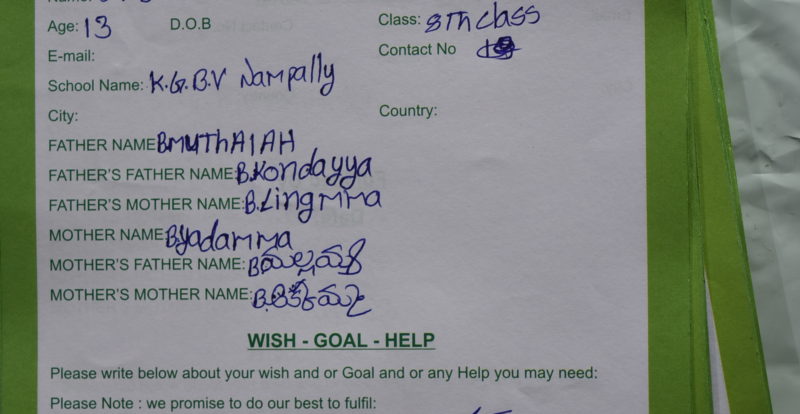 Age: 13 D.O.B Class: 8Th class
E-mail: Contact No
School Name: K.G.B.V Nampally
City: Country:
FATHER NAME B.MUThAIAH
FATHER'S FATHER NAME: B.Kondayya
FATHER'S MOTHER NAME: B.Lingmma
MOTHER NAME: B.yadamma
MOTHER'S FATHER NAME: B
MOTHER'S MOTHER NAME: B.
WISH - GOAL - HELP
Please write below about your wish and or Goal and or any Help you may need:
Please Note : we promise to do our best to fulfil: